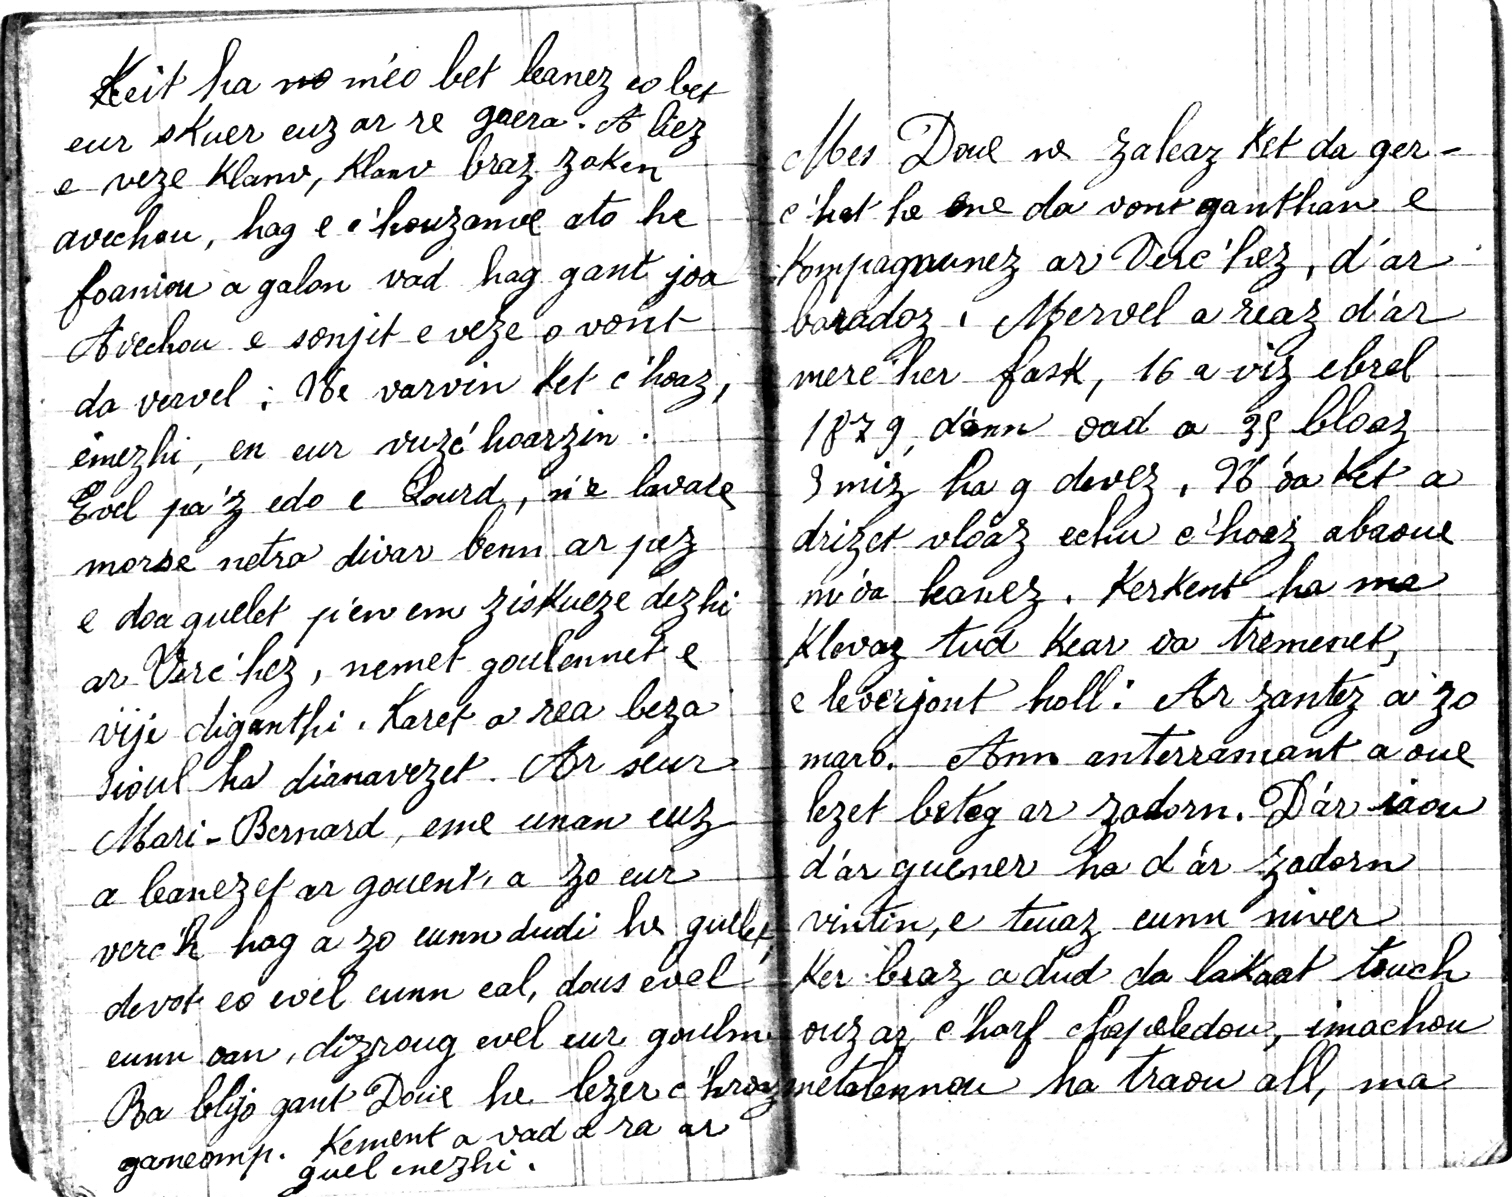 Keit ha no méo bet leanez eo bet
eur skuer euz ar re guera. A liez
e veze klanv, klanv braz zoken
avechou, hag e c'houzanve ato he
foaniou a galon vad hag gant joa
Avechou e sonjit e veze o vont
da vervel ; Ne varvin ket c'hoaz,
émezhi, en eur vuzc'hoarzin.
Evel pa'z edo e Lourd, n'e lavare
morse netra divar benn ar pez
e doa guelet p'en em ziskueze dezhi
ar Verc'hez, nemet goulennet e
vije diganthi. Karet a rea beza
sioul ha dianavezet. Ar seur
Mari-Bernard, eme unan euz
a leanezed ar gouent, a zo eur
verc'h hag a zo eunn dudi he guelet,
devot eo evel eunn eal, dous evel
eunn oan, dizroug evel eur goulm
Ra blijo gant Doue he lezer c'hroaz
ganeomp. Kement a vad a ra ar
guel anezhi.
Mes Doue ne zaleaz ket da ger-
c'hat he ene da vont ganthan e
kompagnunez ar Verc'hez, d'ar
baradoz. Mervel a reaz d'ar
merc'her fask, 16 a viz ebrel
1879, d'ann oad a 35 bloaz
3 miz ha 9 devez. N'oa ket a
drizet vloaz echu c'hoaz abaoue
m'oa leanez. Kerkent ha ma
klevaz tud kear oa tremenet,
e leverjont holl: Ar zantez a zo
maro. Ann anterramant a oue
lezet beteg ar zadorn. D'ar iaou
d'ar guener ha d'ar zadorn
vintin, e teuaz eunn niver
ker braz a dud da lakaat touch
ouz ar c'horf chapeledou, imachou
metalennou ha traou all, ma